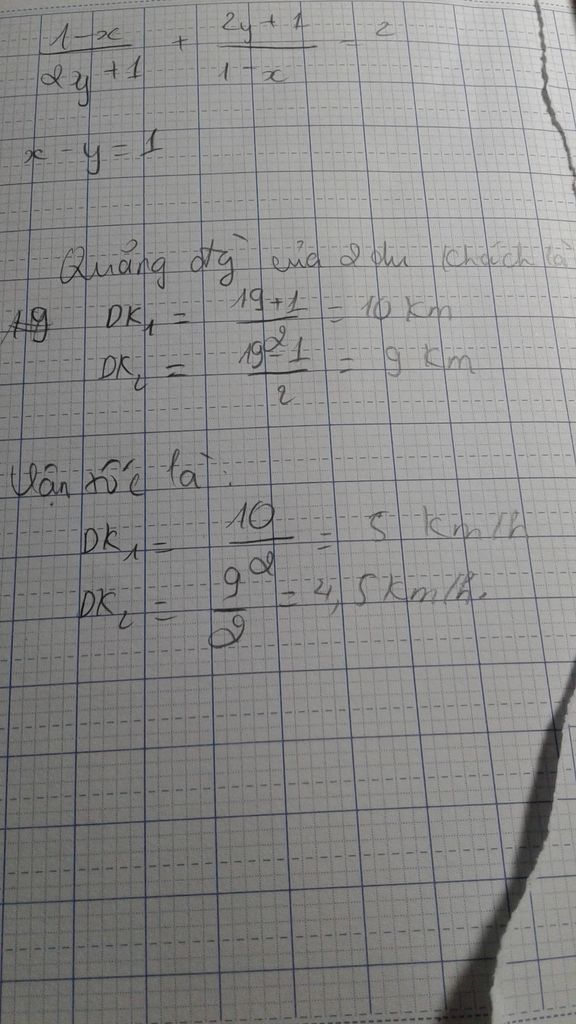 1-x/2y+1 + 2y+1/1-x = 2
x - y = 1
Quảng đg` của 2 du khách là
19 DK₁ = 19+1/2 = 10 km
DK₂ = 19-1/2 = 9 km
Vận tốc là:
DK₁ = 10/2 = 5 km/h
DK₂ = 9/2 = 4,5 km/h.